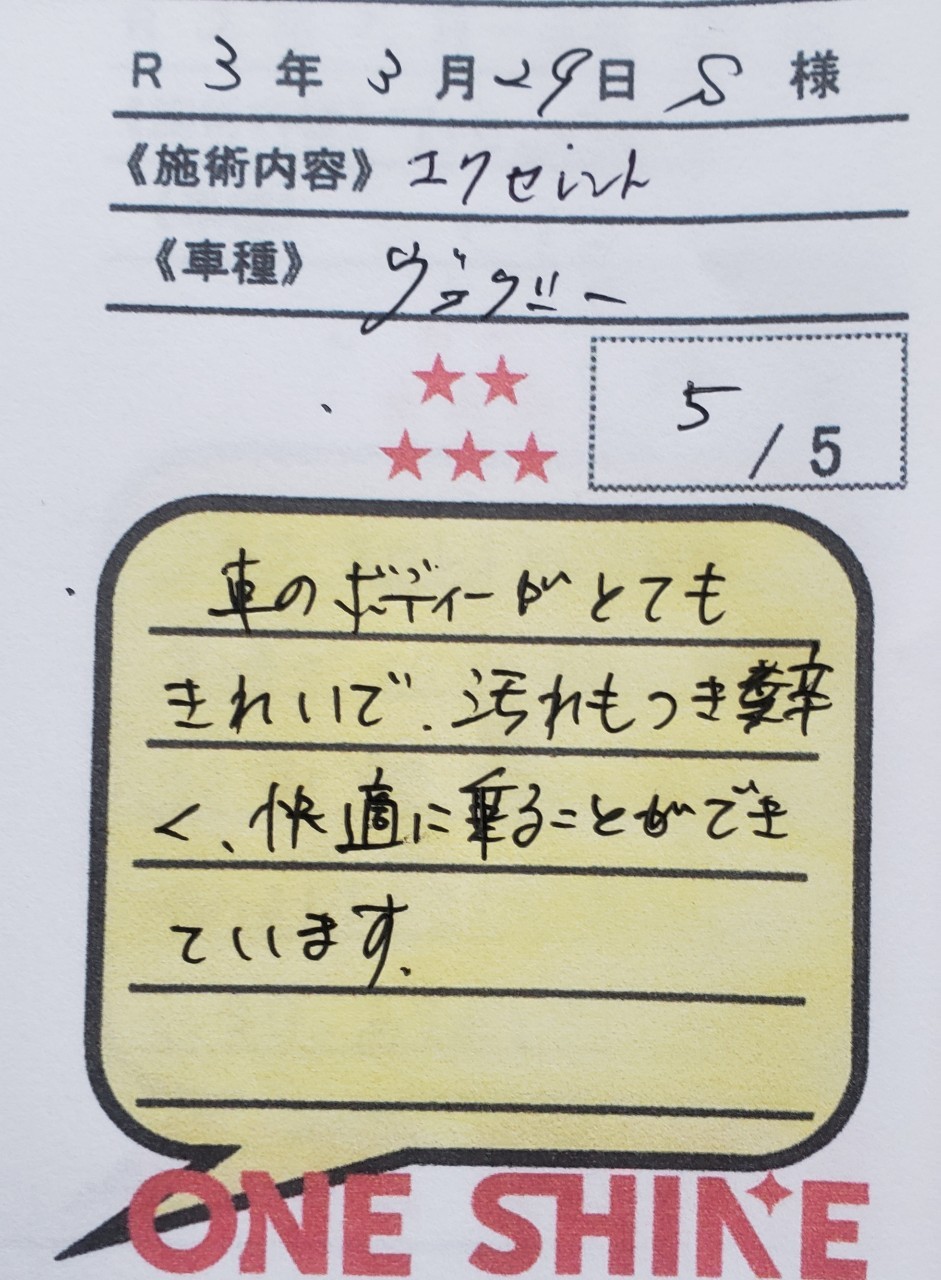 R 3年 3月29日 S 様
《施術内容》エクセレント
《車種》
5/5
車のボディーがとても
きれいで、汚れもつき辛
く、快適に乗ることができ
ています。
ONE SHINE